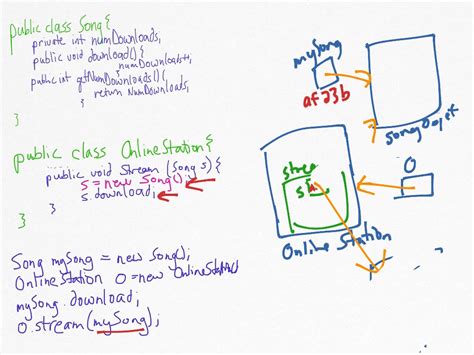 public class Song{
private int numDownloads;
public void download(){
numDownloads++;
}
public int getNumDownloads(){
return NumDownloads;
}
}
public class OnlineStation{
public void Stream (Song s){
s = new Song();
s.download;
}
}
Song mySong = new Song();
OnlineStation O = new OnlineStation()
mySong.download;
O.stream(mySong);
mySong
af23b
song Object
O
stree
s
Online Station